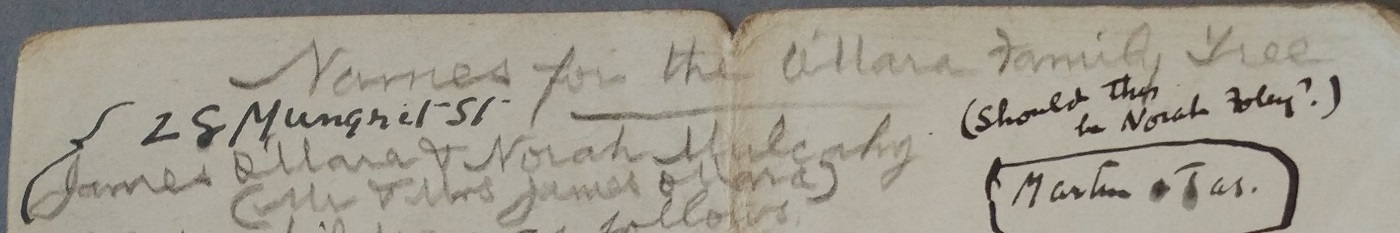 Names for the O'Mara Family Tree
28 Mungret St
(Should this
be Norah Foley?.)
James O'Mara & Norah Mulcahy
(Mr & Mrs James O'Mara)
Martin Jas.
follows